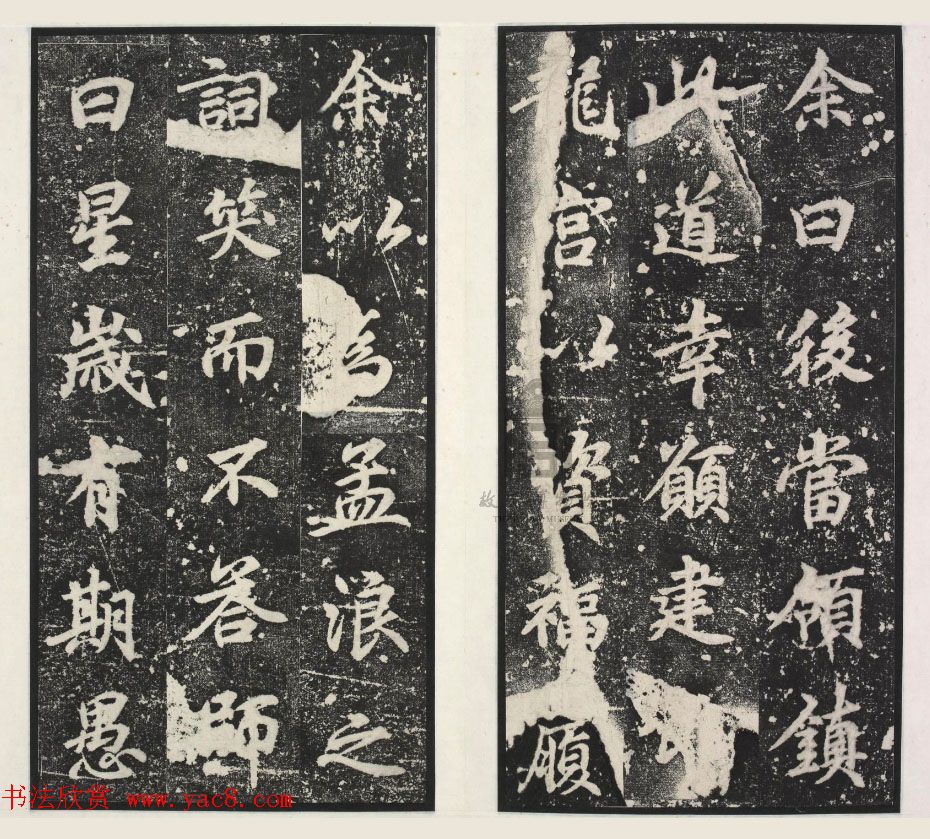 余曰後當領鎮
此道幸願建
龍宮以資福
余以為孟浪之
詞笑而不答師
曰星歲有期愚
书法欣赏 www.yac8.com